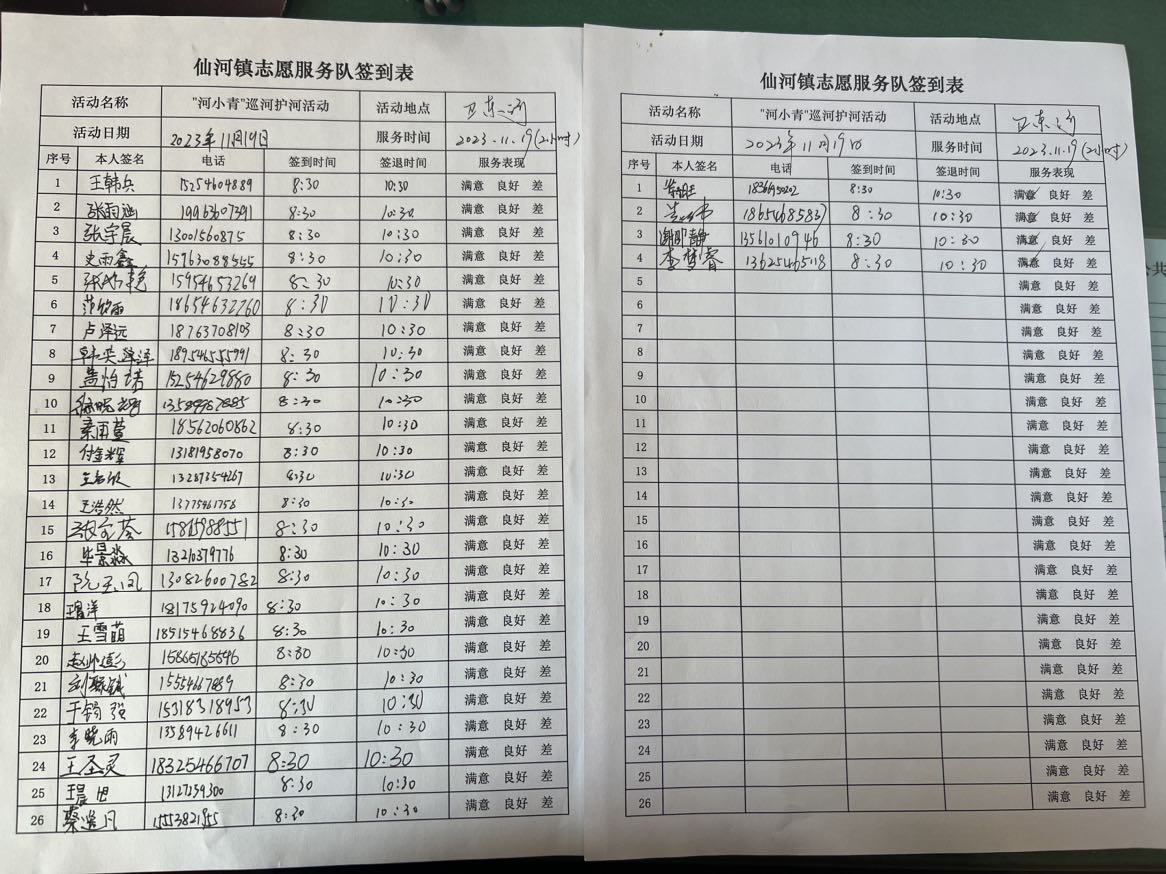 仙河镇志愿服务队签到表
活动名称 "河小青"巡河护河活动 活动地点
活动日期 2023年11月19日 服务时间 2023.11.19(2小时)
序号 本人签名 电话 签到时间 签退时间 服务表现
1 王韩兵 15254604889 8:30 10:30 满意 良好 差
2 张雨涵 19963607391 8:30 10:30 满意 良好 差
3 张宇晨 13001560875 8:30 10:30 满意 良好 差
4 史雨鑫 15763088555 8:30 10:30 满意 良好 差
5 15954653269 8:30 10:30 满意 良好 差
6 范欣雨 18654632760 8:30 10:30 满意 良好 差
7 卢泽远 18763708103 8:30 10:30 满意 良好 差
8 8:30 10:30 满意 良好 差
9 盖怡诺 15254629880 8:30 10:30 满意 良好 差
10 8:30 10:30 满意 良好 差
11 秦雨萱 18562060862 8:30 10:30 满意 良好 差
12 付金辉 13181958070 8:30 10:30 满意 良好 差
13 13287354267 8:30 10:30 满意 良好 差
14 王浩然 13775461756 8:30 10:30 满意 良好 差
15 8:30 10:30 满意 良好 差
16 毕景淼 13210379776 8:30 10:30 满意 良好 差
17 阮玉凤 13082600782 8:30 10:30 满意 良好 差
18 18175924090 8:30 10:30 满意 良好 差
19 王雪萌 18515468836 8:30 10:30 满意 良好 差
20 赵帅彭 8:30 10:30 满意 良好 差
21 15554667889 8:30 10:30 满意 良好 差
22 15318318953 8:30 10:30 满意 良好 差
23 李晓雨 13589426611 8:30 10:30 满意 良好 差
24 王圣灵 18325466707 8:30 10:30 满意 良好 差
25 13127259300 8:30 10:30 满意 良好 差
26 8:30 10:30 满意 良好 差
仙河镇志愿服务队签到表
活动名称 "河小青"巡河护河活动 活动地点
活动日期 2023年11月19日 服务时间 2023.11.19(2小时)
序号 本人签名 电话 签到时间 签退时间 服务表现
1 8:30 10:30 满意 良好 差
2 18654685837 8:30 10:30 满意 良好 差
3 谢静 13561010946 8:30 10:30 满意 良好 差
4 李梦睿 13625465118 8:30 10:30 满意 良好 差
5 满意 良好 差
6 满意 良好 差
7 满意 良好 差
8 满意 良好 差
9 满意 良好 差
10 满意 良好 差
11 满意 良好 差
12 满意 良好 差
13 满意 良好 差
14 满意 良好 差
15 满意 良好 差
16 满意 良好 差
17 满意 良好 差
18 满意 良好 差
19 满意 良好 差
20 满意 良好 差
21 满意 良好 差
22 满意 良好 差
23 满意 良好 差
24 满意 良好 差
25 满意 良好 差
26 满意 良好 差